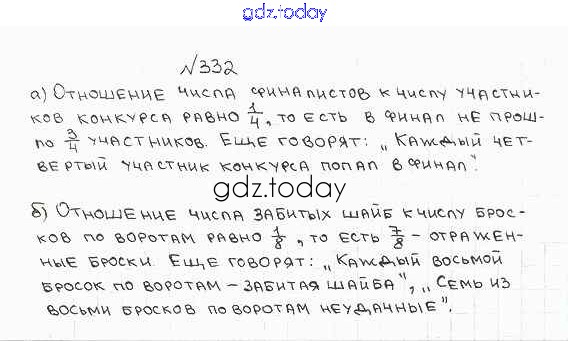 gdz.today
№332
а) Отношение числа финалистов к числу участни-
ков конкурса равно 1/4, то есть в финал не прош-
ло 3/4 участников. Еще говорят: „Каждый чет-
вертый участник конкурса попал в финал".
gdz.today
б) Отношение числа забитых шайб к числу брос-
ков по воротам равно 1/8, то есть 7/8 - отражен-
ные броски. Еще говорят: „Каждый восьмой
бросок по воротам - забитая шайба", „Семь из
восьми бросков по воротам неудачные".